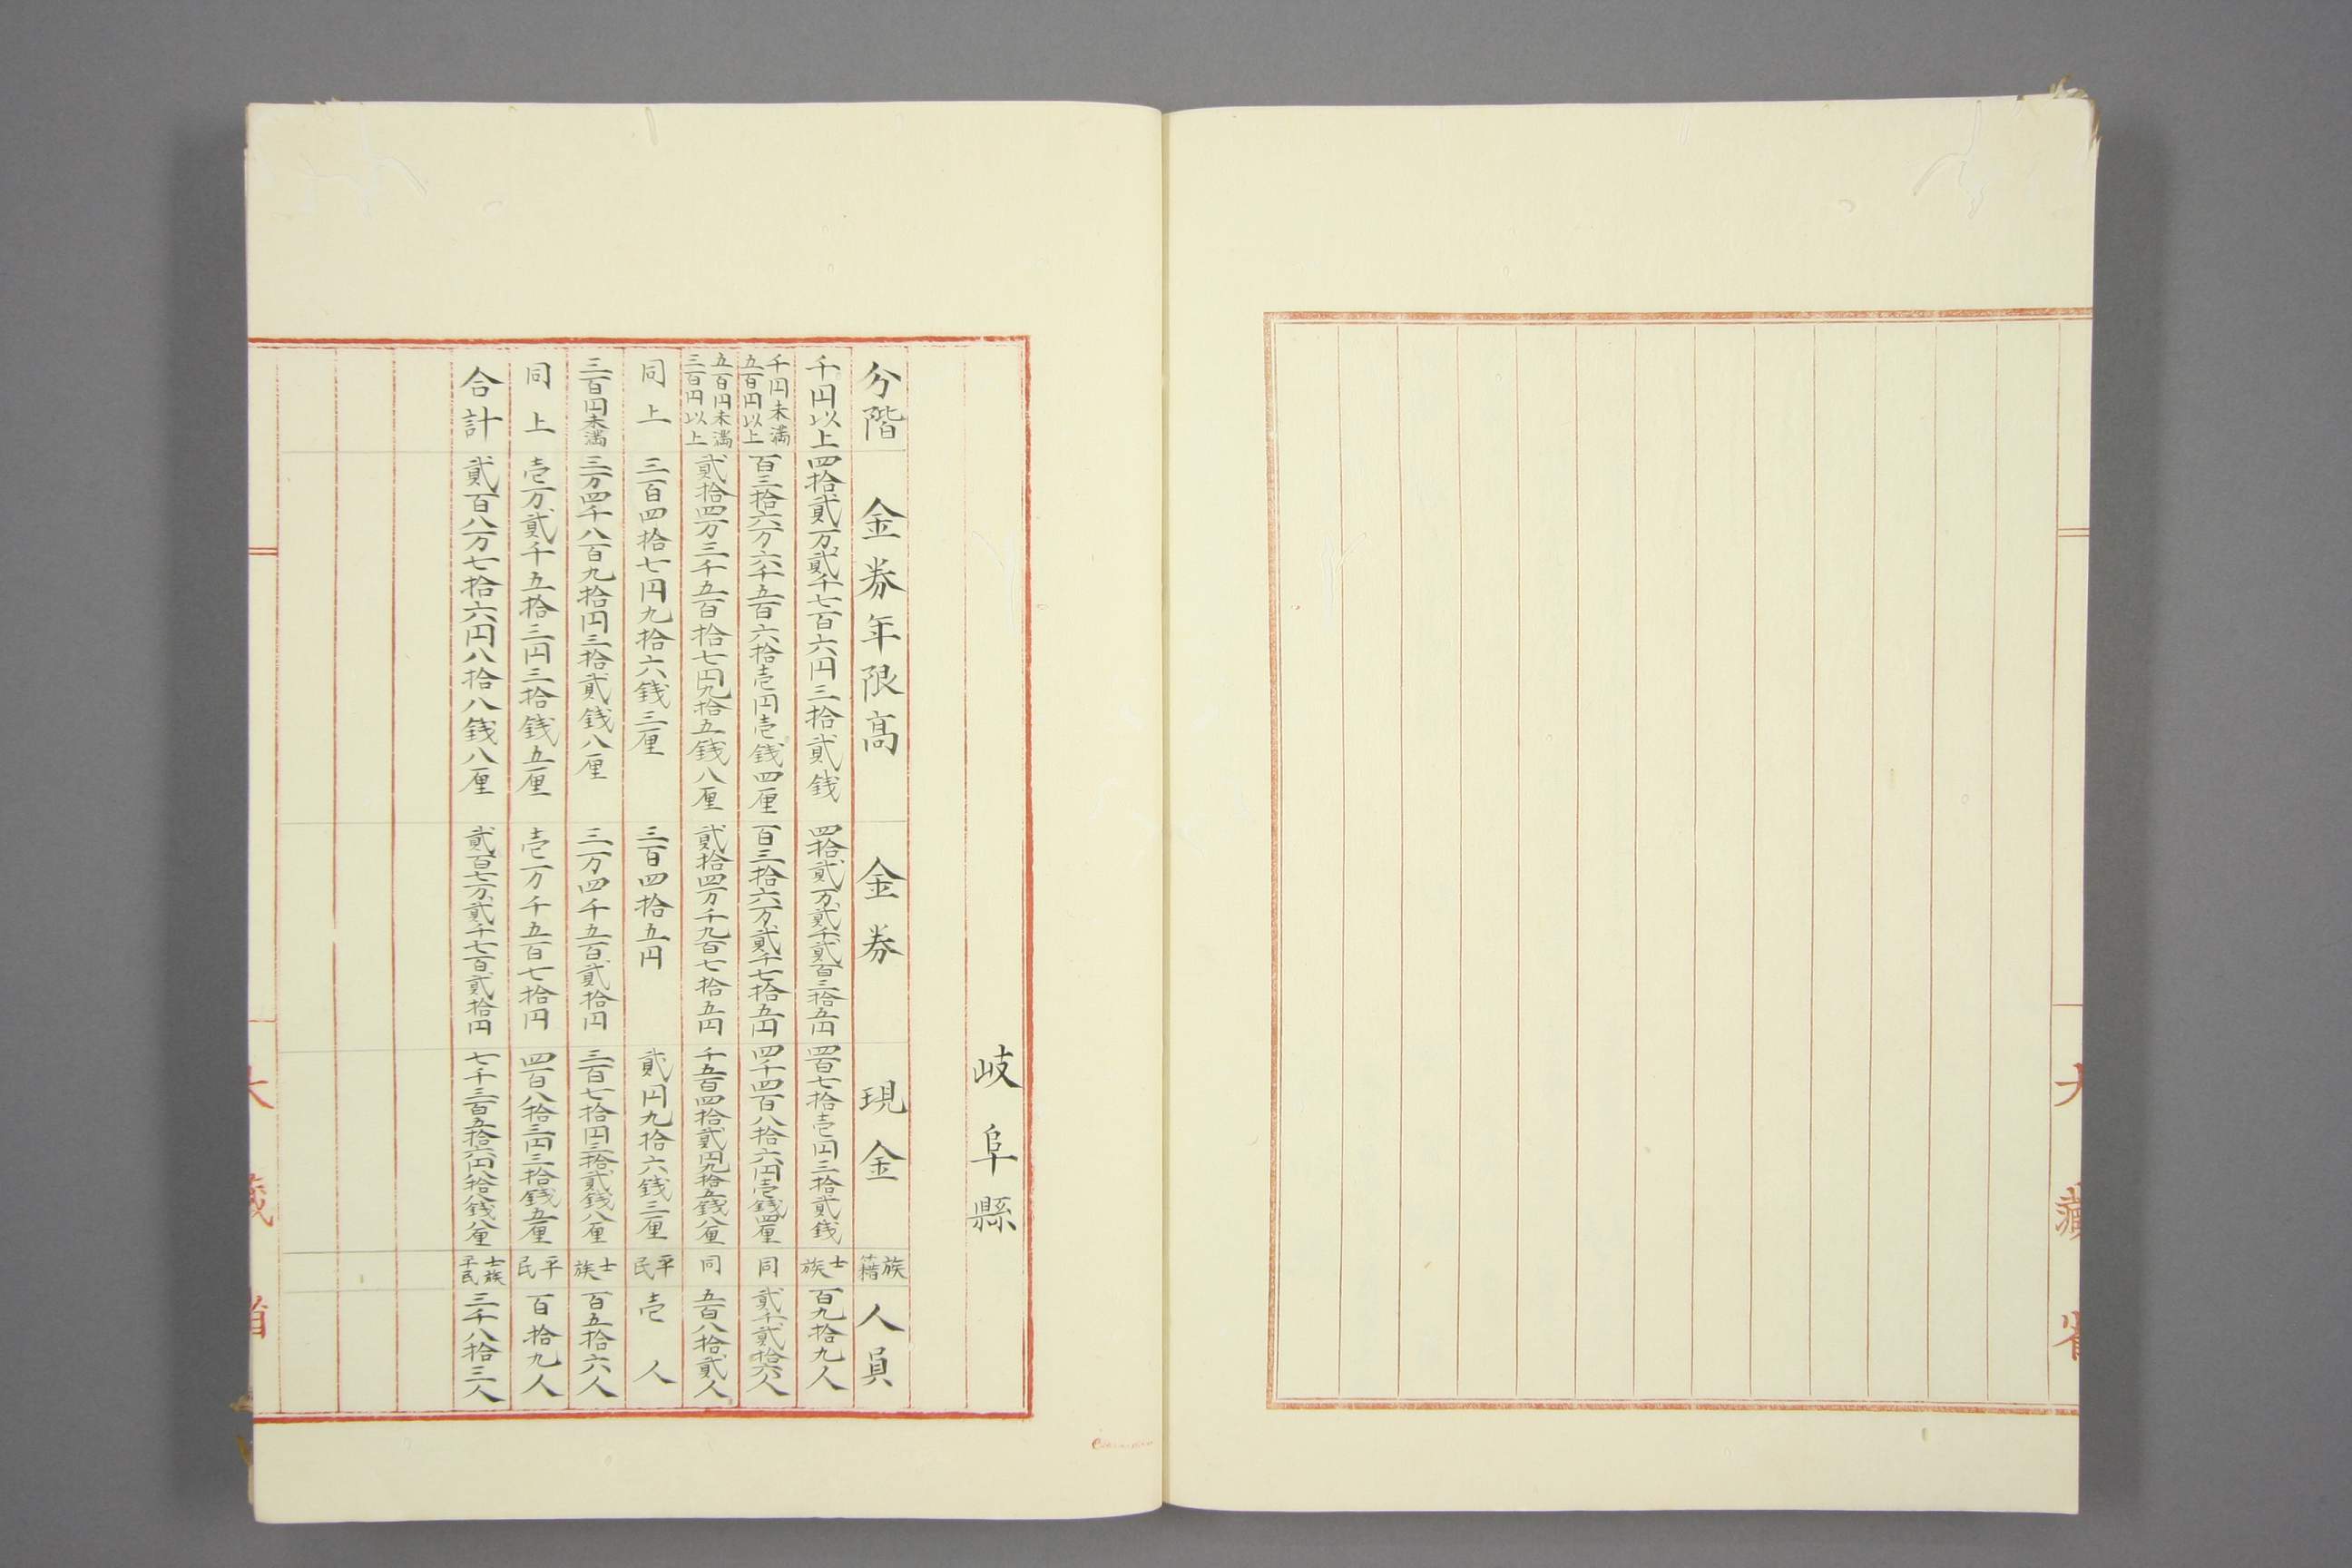 大藏省
岐阜縣
分階 金券年限高 金券 現金 族籍 人員
千円以上 四拾貳万貳千七百六円三拾貳銭 四拾貳万貳千貳百三拾五円 四百七拾壱円三拾貳銭 士族 百九拾九人
千円未満五百円以上 百三拾六万六千五百六拾壱円壱銭四厘 百三拾六万貳千七拾五円 四千四百八拾六円壱銭四厘 同 貳千貳拾六人
五百円未満三百円以上 貳拾四万三千五百拾七円九拾五銭八厘 貳拾四万千九百七拾五円 千五百四拾貳円九拾五銭八厘 同 五百八拾貳人
同上 三百四拾七円九拾六銭三厘 三百四拾五円 貳円九拾六銭三厘 平民 壱人
三百円未満 三万四千八百九拾円三拾貳銭八厘 三万四千五百貳拾円 三百七拾円三拾貳銭八厘 士族 百五拾六人
同上 壱万貳千五拾三円三拾銭五厘 壱万千五百七拾円 四百八拾三円三拾銭五厘 平民 百拾九人
合計 貳百八万七拾六円八拾八銭八厘 貳百七万貳千七百貳拾円 七千三百五拾六円八拾八銭八厘 士族平民 三千八拾三人
大藏省